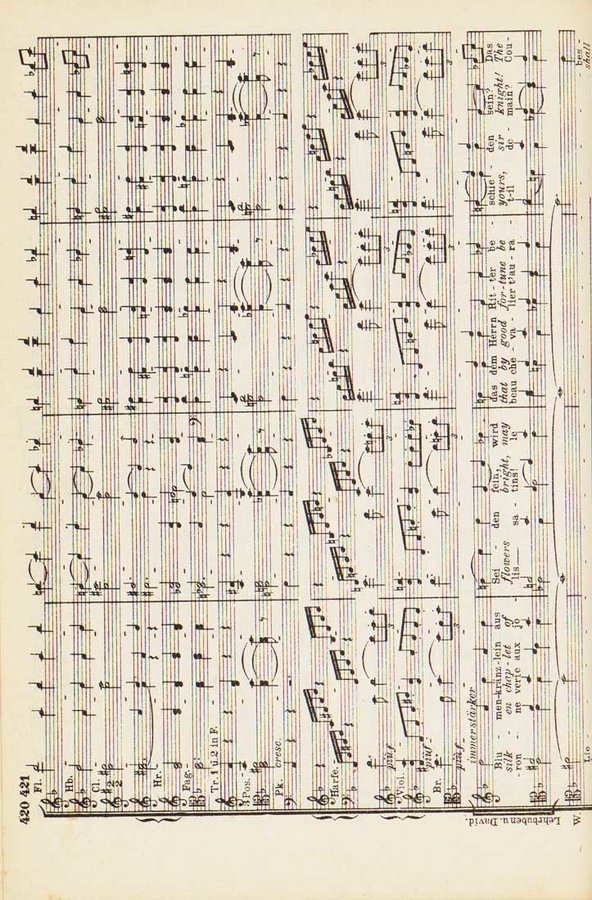 420 421
Fl.
Hb.
Cl.
Hr.
Fag.
Tr. 1 ü. 2 in F.
3 Pos.
Pk.
cresc
Harfe.
più f
Viol.
più f
Br.
più f
immer stärker
Lehrbuben u. David.
Blu - men-kränz-lein aus Sei - den fein, wird das dem Herrn Rit - ter be - schie - den sein? Das
silk - en chap - let of flowers bright, may that by good for - tune be yours, sir knight! The
ron - ne verte aux jo - lis sa - tins! le beau che - va - lier t'au - ra t-il de - main? Cou-
W.
Lie
bes
shall